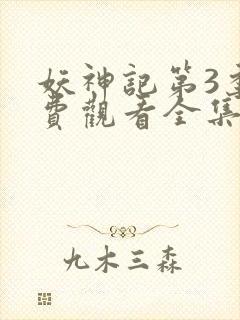 妖神記第3
費觀看全集
九木三森